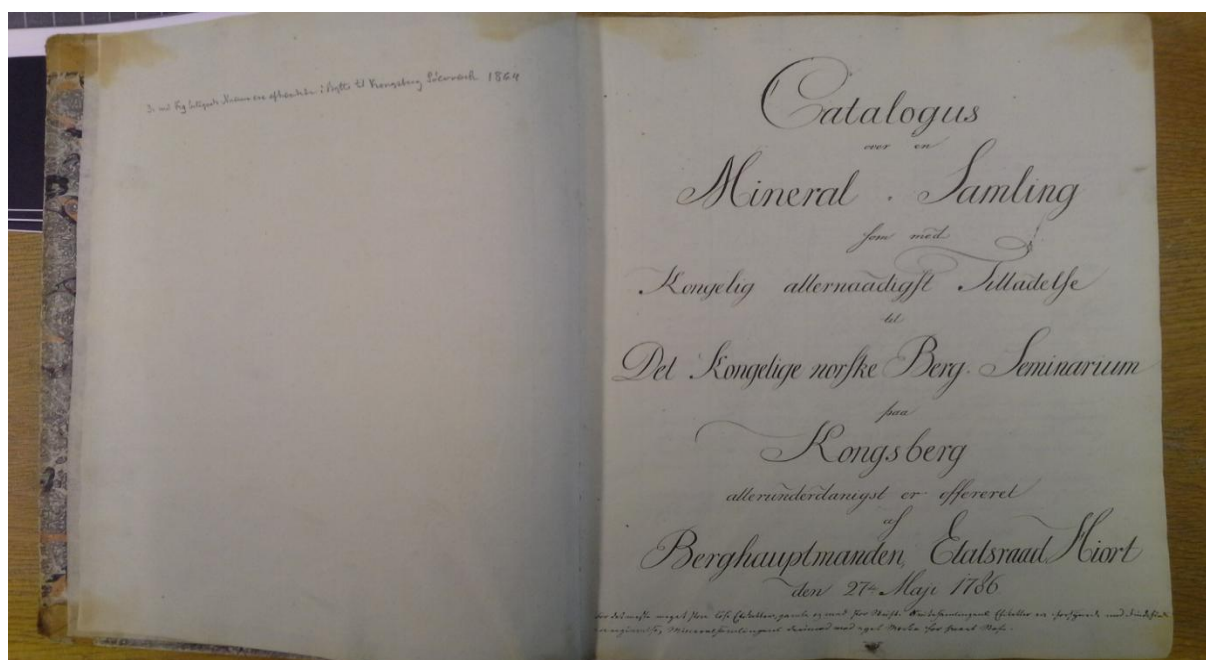 De med Kryds betegnede Numere ere afhændede i Bytte til Kongsberg Sölvværk 1864
Catalogus
over en
Mineral. Samling
som med
Kongelig allernaadigst Tilladelse
til
Det Kongelige norske Berg. Seminarium
paa
Kongsberg
allerunderdanigst er offereret
af
Berghauptmanden, Etatsraad Hiort
den 27de Maji 1786.